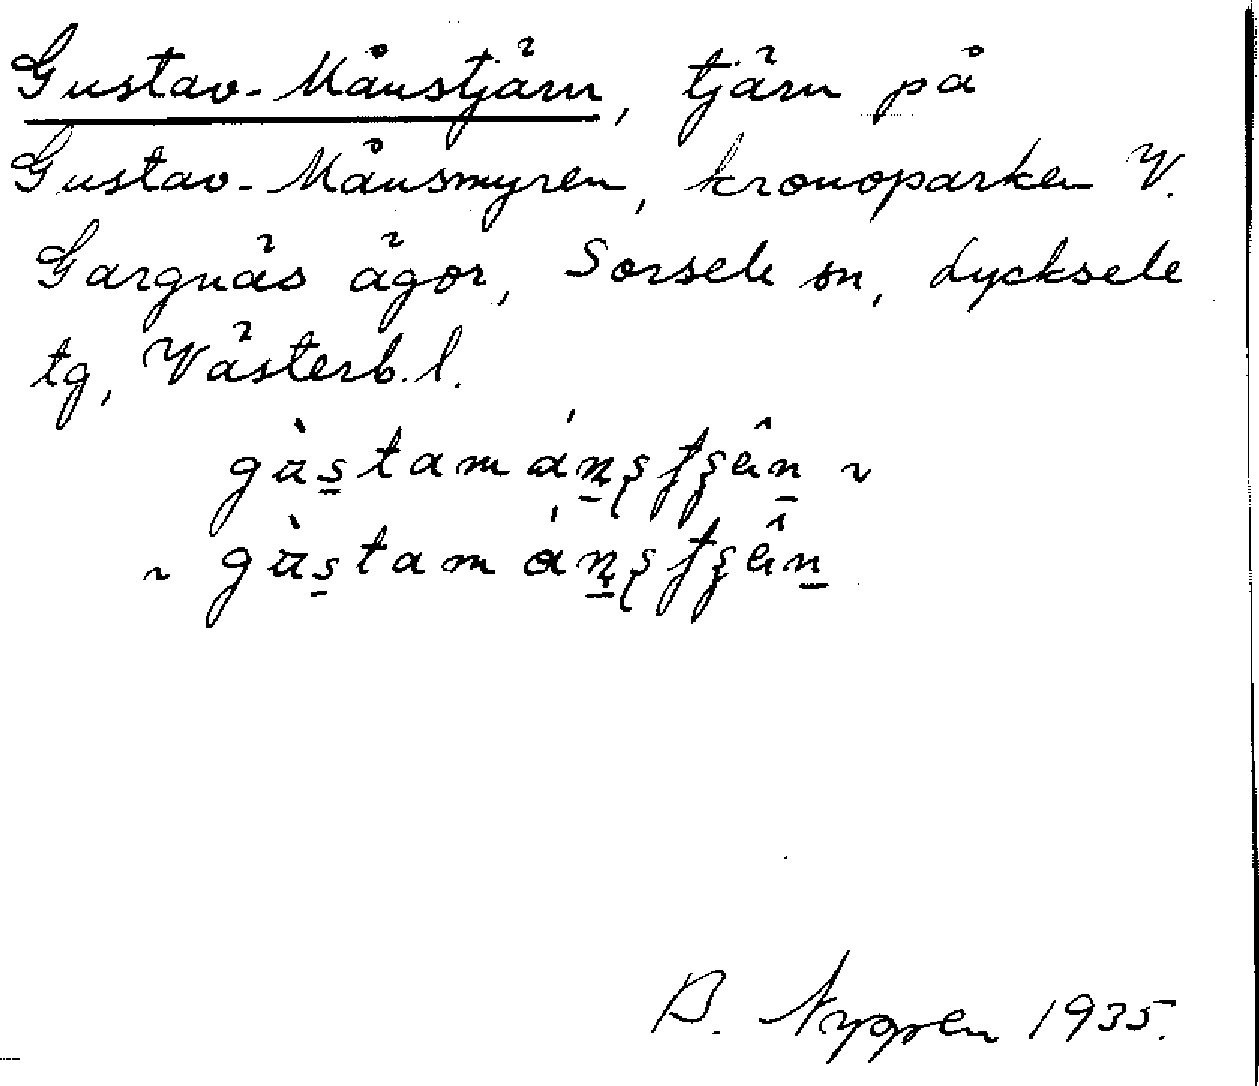 Gustav-Månstjärn, tjärn på
Gustav-Månsmyren, kronoparken V.
Gargnäs ägor, Sorsele sn, Lycksele
tg, Västerb. l.
B. Nygren 1935.